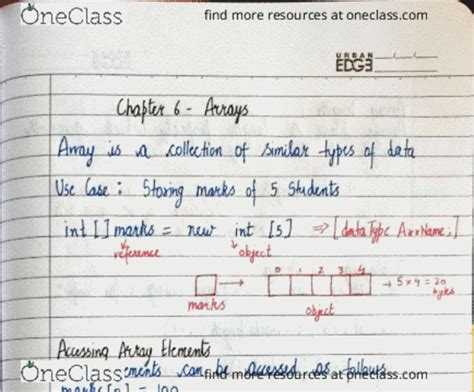 OneClass find more resources at oneclass.com
URBAN EDGE
Chapter 6 - Arrays
Array is a collection of similar types of data
Use Case : Storing marks of 5 Students
int [] marks = new int [5] ⇒ [dataType ArrName;]
reference object
0 1 2 3 4
→ → 5 x 4 = 20 bytes
marks object
Accessing Array Elements
OneClass ements can be accessed as follows
find more resources at oneclass.com
marks[0] = 100